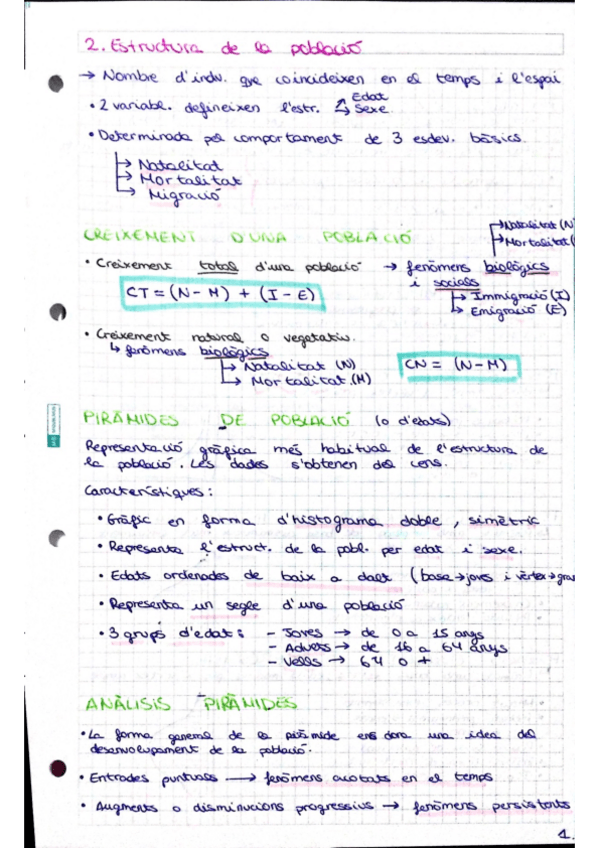 2. Estructura de la població
→ Nombre d'indv. que coincideixen en el temps i l'espai
• 2 variabl. defineixen l'estr. → Edat
→ Sexe
• Determinada pel comportament de 3 esdev. bàsics
→ Natalitat
→ Mortalitat
→ Migració
CREIXEMENT D'UNA POBLACIÓ
→ Natalitat (N
→ Mortalitat (
• Creixement total d'una població → fenòmens biològics
i socials
CT = (N - M) + (I - E)
→ Immigració (I)
→ Emigració (E)
• Creixement natural o vegetatiu.
↳ fenòmens biològics
→ Natalitat (N)
→ Mortalitat (M)
CN = (N - M)
PIRÀMIDES DE POBLACIÓ (o d'edats)
Representació gràfica més habitual de l'estructura de
la població. Les dades s'obtenen del cens.
Característiques:
• Gràfic en forma d'histograma doble, simètric
• Representa l'estruct. de la pobl. per edat i sexe.
• Edats ordenades de baix a dalt (base → joves i vèrtex → gran
• Representa un segle d'una població
• 3 grups d'edat: - Joves → de 0 a 15 anys
- Adults → de 16 a 64 anys
- Vells → 64 o +
ANÀLISIS PIRÀMIDES
• La forma general de la piràmide ens dona una idea del
desenvolupament de la població.
• Entrades puntuals → fenòmens acotats en el temps
• Augments o disminucions progressius → fenòmens persistents
1.